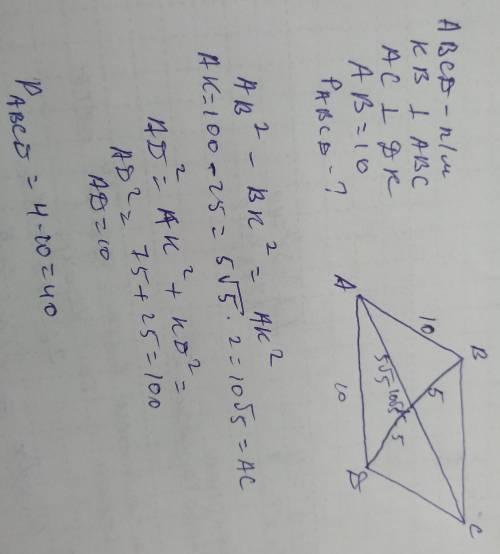 ABCD - п/м
KB ⊥ ABC
AC ⊥ DK
AB = 10
P ABCD - ?
AB² - BK² = AK²
AK = 100 - 25 = 5√5 · 2 = 10√5 = AC
AD² = AK² + KD² =
AD² = 75 + 25 = 100
AD = 10
P ABCD = 4 · 10 = 40
A
B
C
D
10
5
5
5√5
10